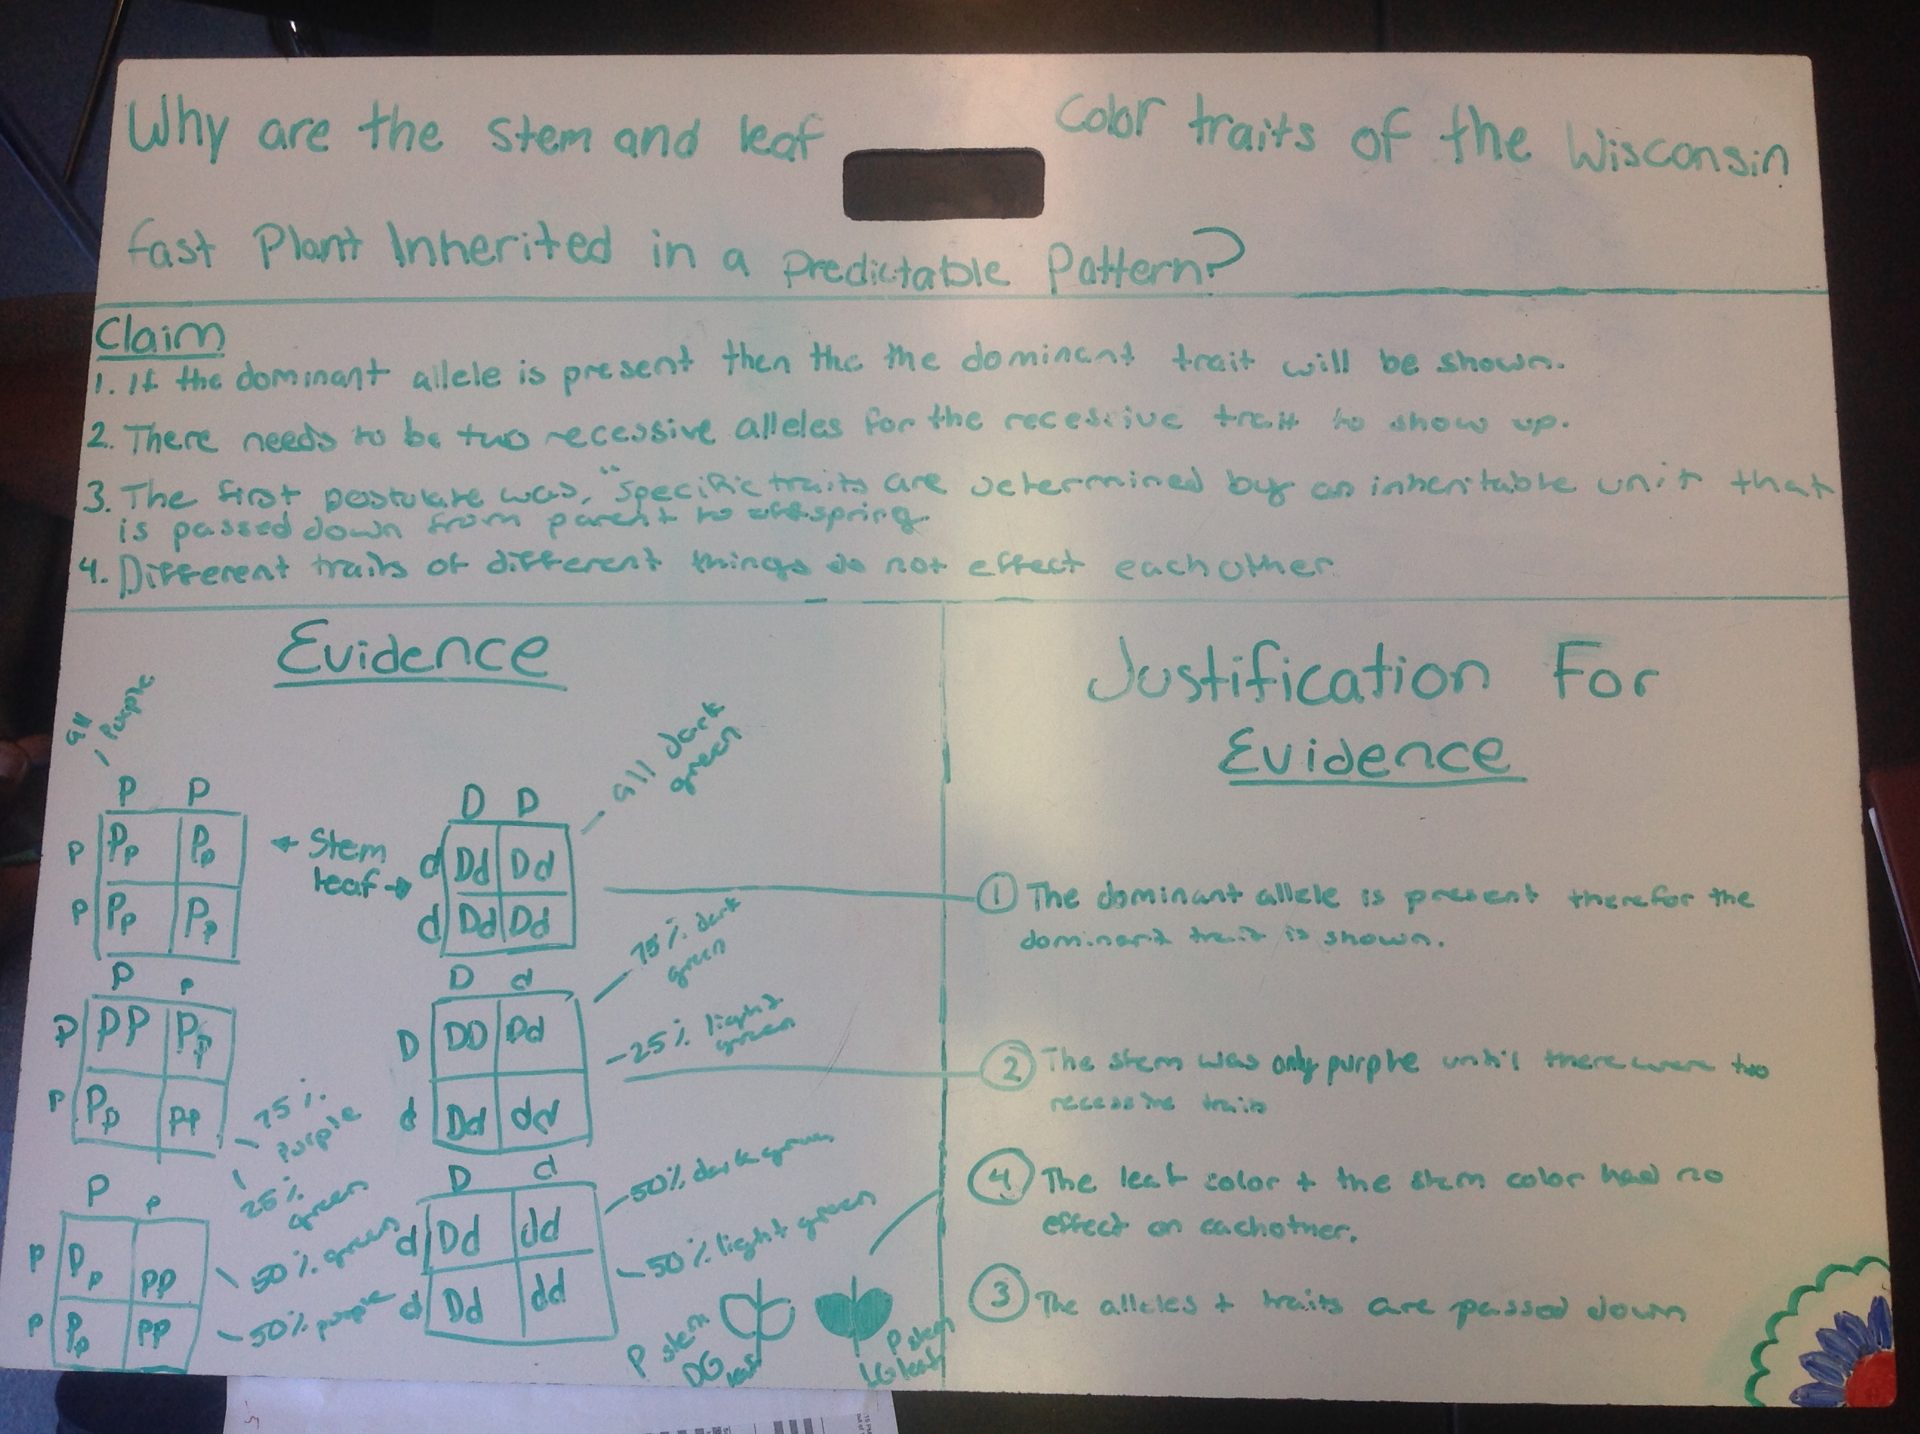 Why are the stem and leaf Color traits of the Wisconsin
fast Plant Inherited in a Predictable Pattern?
Claim
1. If the dominant allele is present then the the dominant trait will be shown.
2. There needs to be two recessive alleles for the recessive trait to show up.
3. The first postulate was, "specific traits are determined by an inheritable unit that
is passed down from parent to offspring.
4. Different traits of different things do not effect eachother
Evidence
all
Purple
P P
p Pp Pp
p Pp Pp
← Stem
leaf →
D D
d Dd Dd
d Dd Dd
all dark
green
P p
P PP Pp
p Pp pp
75%
purple
25%
green
D d
D DD Dd
d Dd dd
75% dark
green
25% light
green
P p
p Pp pp
p Pp pp
50% green
50% purple
D d
d Dd dd
d Dd dd
50% dark green
50% light green
P stem
DG leaf
P stem
LG leaf
Justification For
Evidence
① The dominant allele is present therefor the
dominant trait is shown.
② The stem was only purple until there were two
recessive traits
④ The leaf color + the stem color had no
effect on eachother.
③ The alleles + traits are passed down